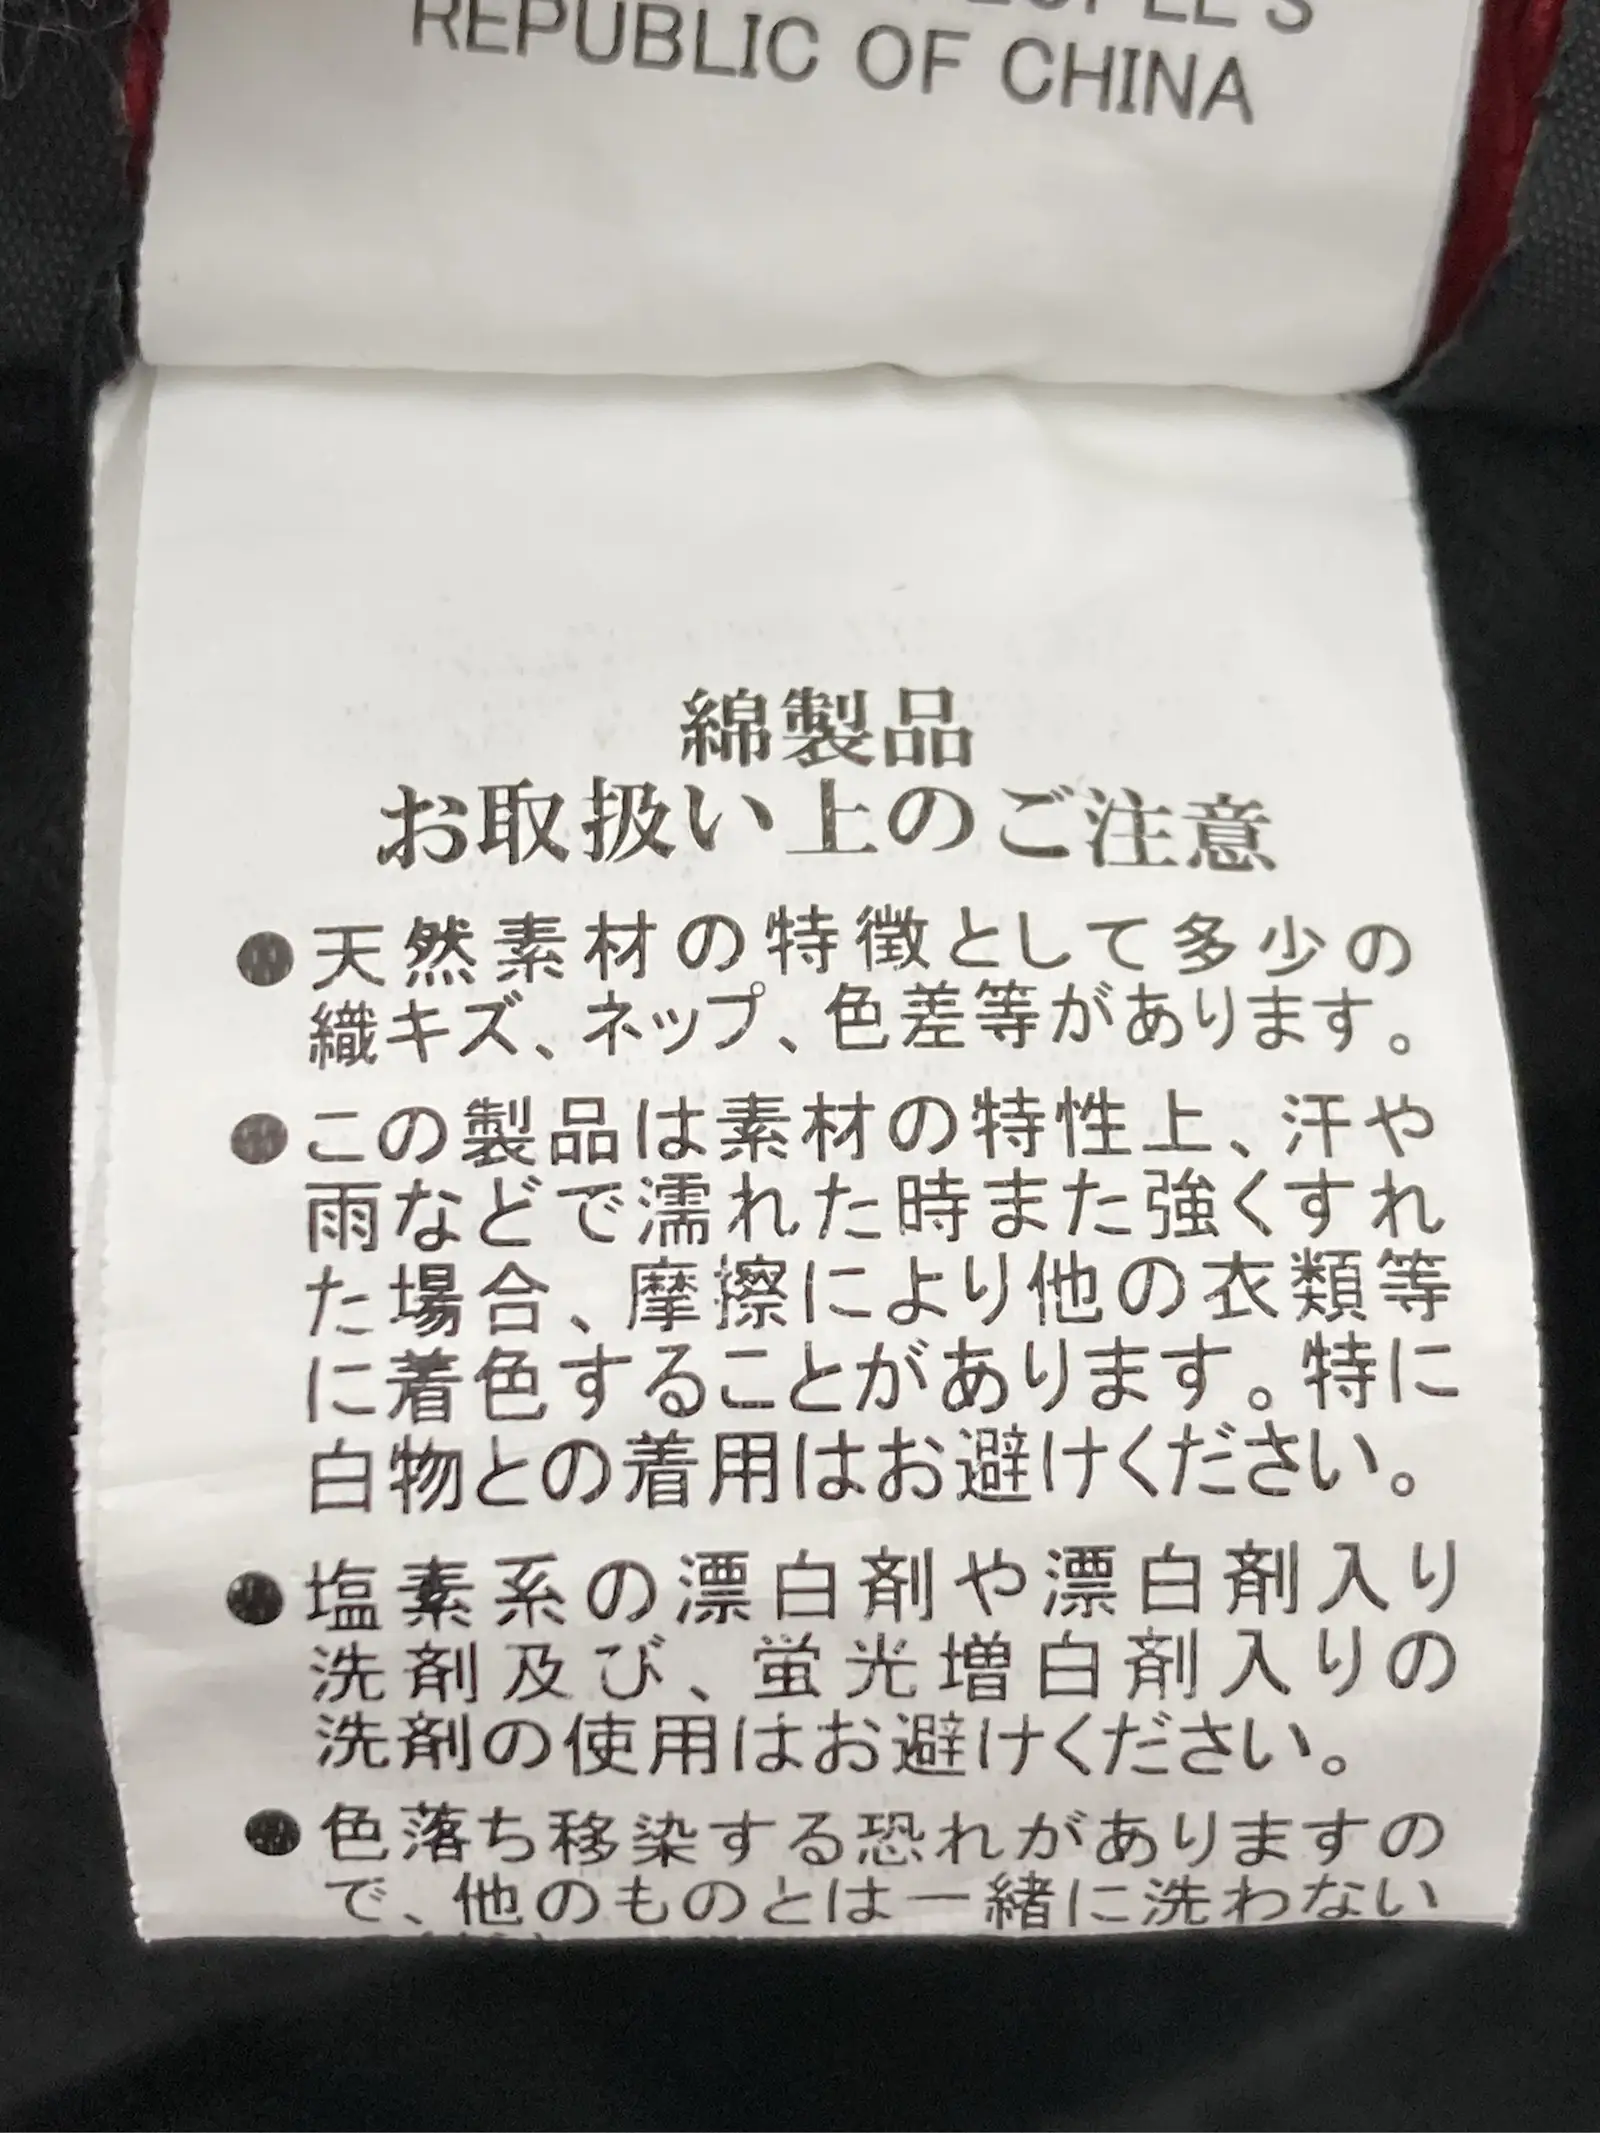 PEOPLE'S
REPUBLIC OF CHINA
綿製品
お取扱い上のご注意
●天然素材の特徴として多少の
織キズ、ネップ、色差等があります。
●この製品は素材の特性上、汗や
雨などで濡れた時また強くすれ
た場合、摩擦により他の衣類等
に着色することがあります。特に
白物との着用はお避けください。
●塩素系の漂白剤や漂白剤入り
洗剤及び、蛍光増白剤入りの
洗剤の使用はお避けください。
●色落ち移染する恐れがありますの
で、他のものとは一緒に洗わない